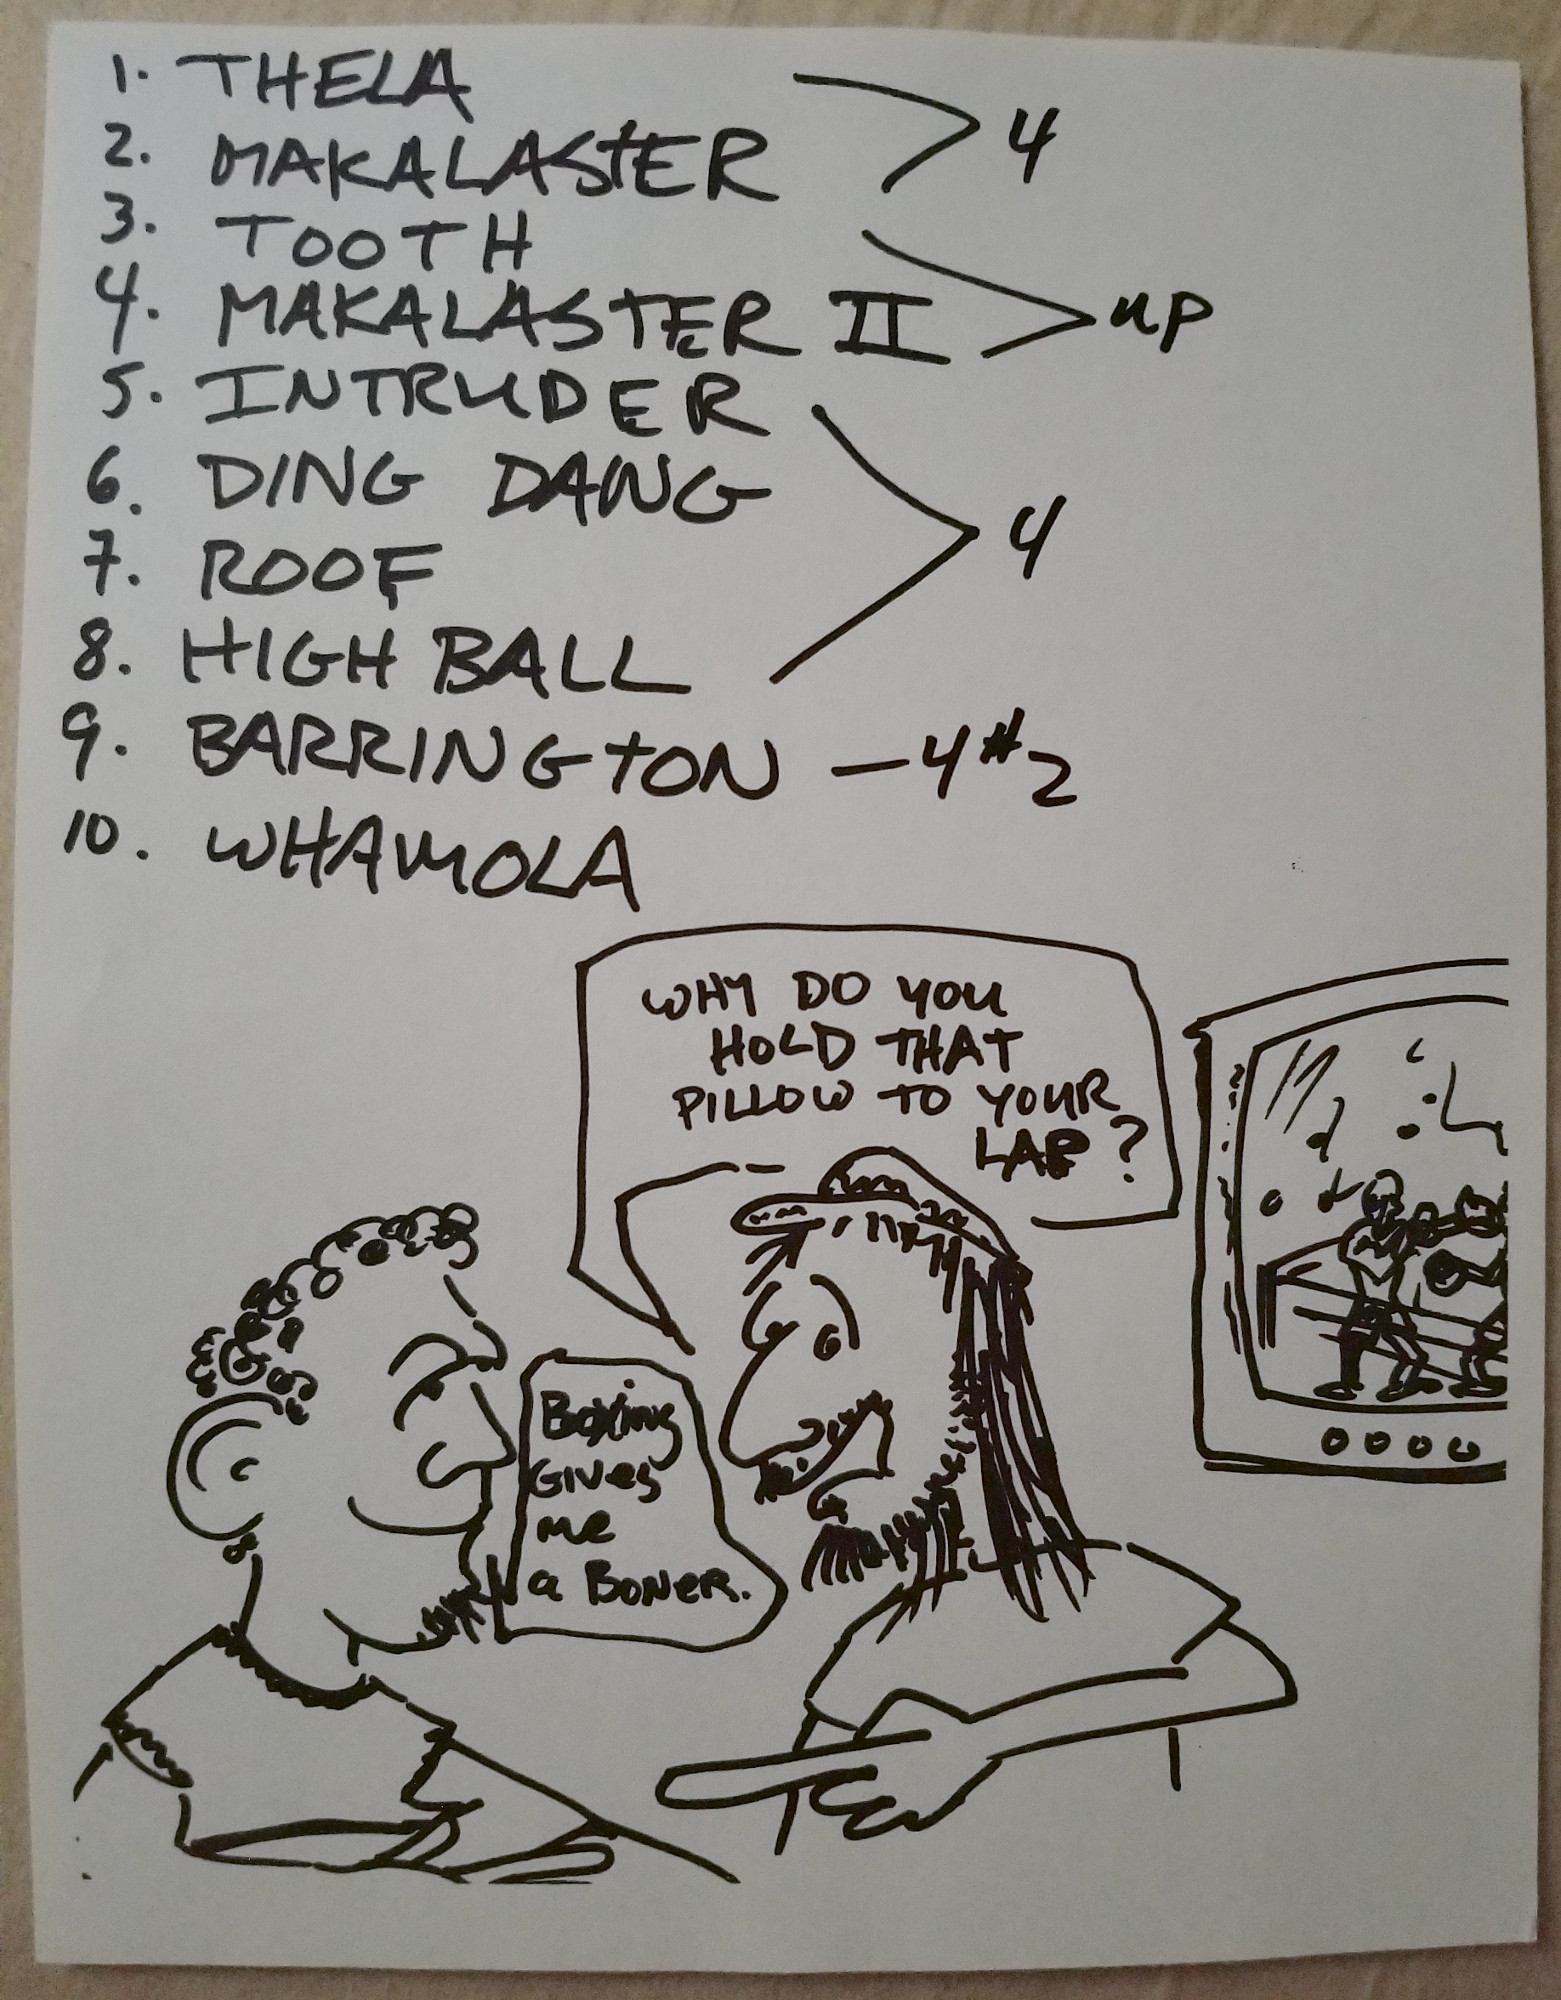 1. THELA
2. MAKALASTER
4
3. TOOTH
4. MAKALASTER II
up
5. INTRUDER
6. DING DANG
7. ROOF
8. HIGH BALL
4
9. BARRINGTON - 4 #2
10. WHAMOLA
WHY DO YOU
HOLD THAT
PILLOW TO YOUR
LAP?
Boxing
Gives
me
a BONER.